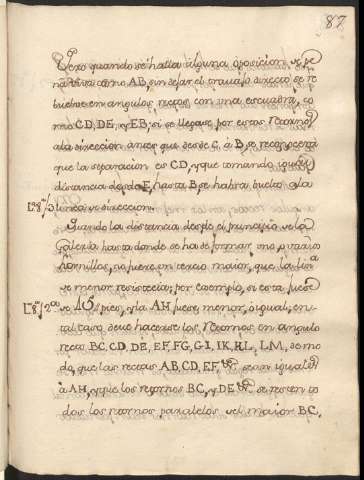 87
Pero quando se halla alguna oposicion de pe
na viva como AB, sin dejar el travajo directo se re
buelve en angulos rectos con una escuadra, co
mo CD, DE, y EB; si se llegase por estos retornos
a la direccion antes que desde C, a B, se reconocerá
que la separacion es CD, y que tomando igual
distancia desde E, hasta B, se habrá buelto a la
linea de direccion.
Quando la distancia desde el principio de la
Galeria hasta donde se ha de formar uno, o varios
hornillos, no fuere un tercio maior, que la lin.a
de menor resistecia; por exemplo, si esta fuese
de 16 pies, y la AH fuese menor, o igual; en
tal caso deve hacerse los retornos en angulo
recto BC, CD, DE, EF, FG, GI, IK, KL, LM, de mo
do, que las rectas AB, CD, EF, &c. sean iguales
à AH, y que los retornos BC, y DE &c. se resten to
dos los retornos paralelos del maior BC,